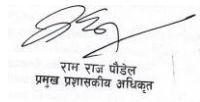 राम राज पौडेल
प्रमुख प्रशासकीय अधिकृत